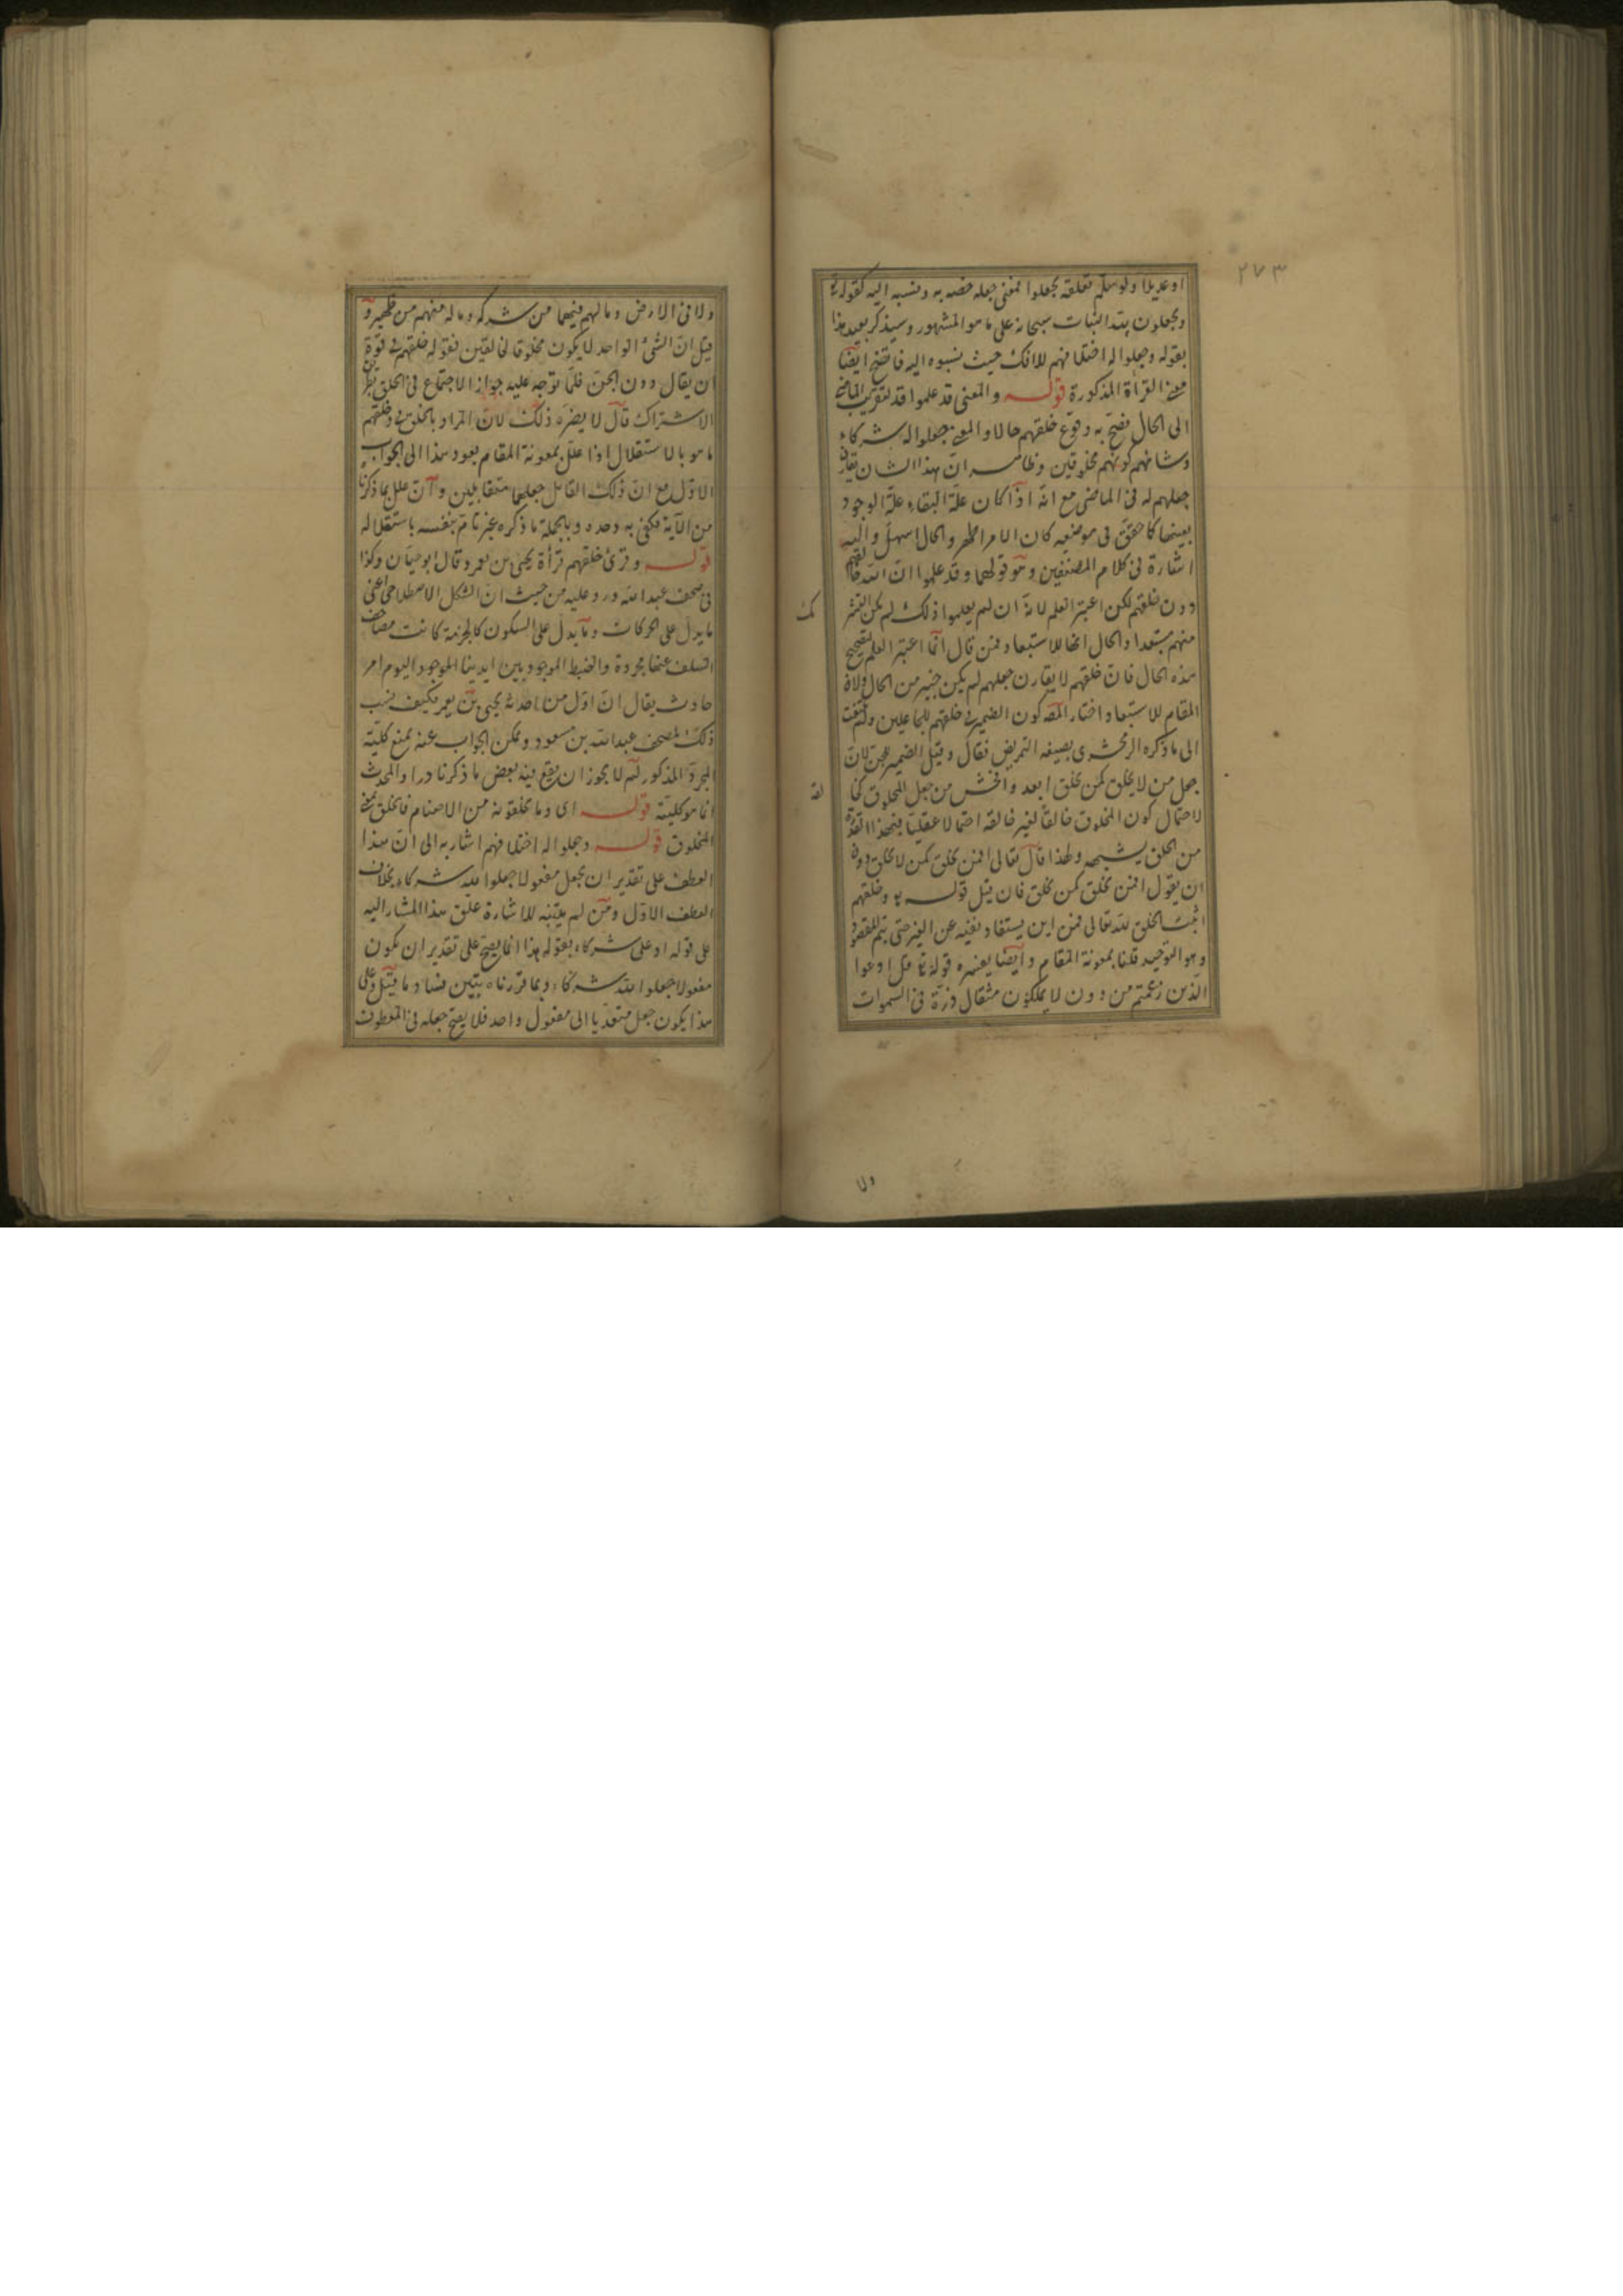 ٢٧٣
او عديلا ولو سلم تعلقه بجعلوا بمعنى جعله خصه به ونسبه اليه كقوله تع
ويجعلون لله البنات سبحانه على ما هو المشهور وسيذكر بعيد هذا
بقوله وجعلوا له اختلافهم للافك حيث نسبوه اليه فاتضح ايضا
معنى القرأة المذكورة قوله والمعنى قد علموا قد لتقريب الماضى
الى الحال فصح به وقوع خلقهم حالا والمعنى جعلوا له شركاء
وشانهم كونهم مخلوقين وظاهر ان هذا الشان يقارن
جعلهم له فى الماضى مع انه اذا كان علة البقاء علة الوجود
بعينها كا حقق فى موضعه كان الامر اظهر والحال اسهل واليه
اشارة فى كلام المصنفين وهو قولهما وقد علموا ان الله خالقهم
دون خلقهم لكن اعتبر العلم لانه ان لم يعلموا ذلك لم يكن
منهم مستبعدا والحال انها للاستبعاد فمن قال انما اعتبر العلم لتصحيح
هذه الحال فان خلقهم لا يقارن جعلهم لم يكن خبير من الحال ولان
المقام للاستبعاد اختار المصـ كون الضمير فى خلقهم للجاعلين ولم يلتفت
الى ما ذكره الزمخشرى بصيغة التمريض فقال وقيل الضمير للجن لان
جعل من لا يخلق كمن يخلق ابعد وافحش من جعل المخلوق كخا
لقه
لاحتمال كون المخلوق خالقا لغير خالقه احتمالا عقليا فبهذا القدر
من الخلق يشبهه ولهذا قال تعالى افمن يخلق كمن لا يخلق دون
ان يقول افمن يخلق كمن يخلق فان قيل قوله تع وخلقهم
اثبت الخلق لله تعالى فمن اين يستفاد نفيه عن الغير حتى يتم المقصود
وهو التوحيد قلنا بمعونة المقام وايضا يفسره قوله تع قل ادعوا
الذين زعمتم من دون لا يملكون مثقال ذرة فى السموات
ولا
ولا فى الارض وما لهم فيهما من شرك وما له منهم من ظهير و
قيل ان الشئ الواحد لا يكون مخلوقا لخالقين فقوله خلقهم فى قوة
ان يقال دون الجن فلما توجه عليه جواز الاجتماع فى الخلق بطريق
الاشتراك قال لا يضره ذلك لان المراد بالخلق فى وخلقهم
ما هو بالاستقلال اذا علل بمعونة المقام يعود هذا الى الجواب
الاول مع ان ذلك القائل جعلهما متقابلين وان علل بما ذكرنا
من الآية فكفى به وحده وبالجملة ما ذكره غير تام بنفسه باستقلاله
قوله وقرئ خلقهم قرأة يحيى بن يعمر وقال ابو حيان وكذا
فى مصحف عبد الله ورد عليه من حيث ان الشكل الاصطلاحى اعنى
ما يدل على الحركات وما يدل على السكون كالجزمة كانت مصاحف
السلف عنها مجردة والضبط الموجود بين ايدينا الموجود اليوم امر
حادث يقال ان اول من احدثه يحيى بن يعمر فكيف ينسب
ذلك لمصحف عبد الله بن مسعود ويمكن الجواب عنه بمنع كلية
التجرد المذكور لم لا يجوز ان يقع فيه بعض ما ذكرنا درا والمحدث
انما هو كليته قوله اى وما يخلقونه من الاصنام فالخلق بمعنى
المخلوق قوله وجعلوا له اختلافهم اشار به الى ان هذا
العطف على تقدير ان يجعل مفعولا جعلوا لله شركاء بخلاف
العطف الاول ومن لم يتنبه للاشارة علق هذا المشار اليه
على قوله او على شركاء بقوله هذا انما يصح على تقدير ان يكون
مفعولا جعلوا لله شركاء وبما قررناه يتبين فساد ما قيل وعلى
هذا يكون جعل متعديا الى مفعول واحد فلا يصح جعله فى المعطوف